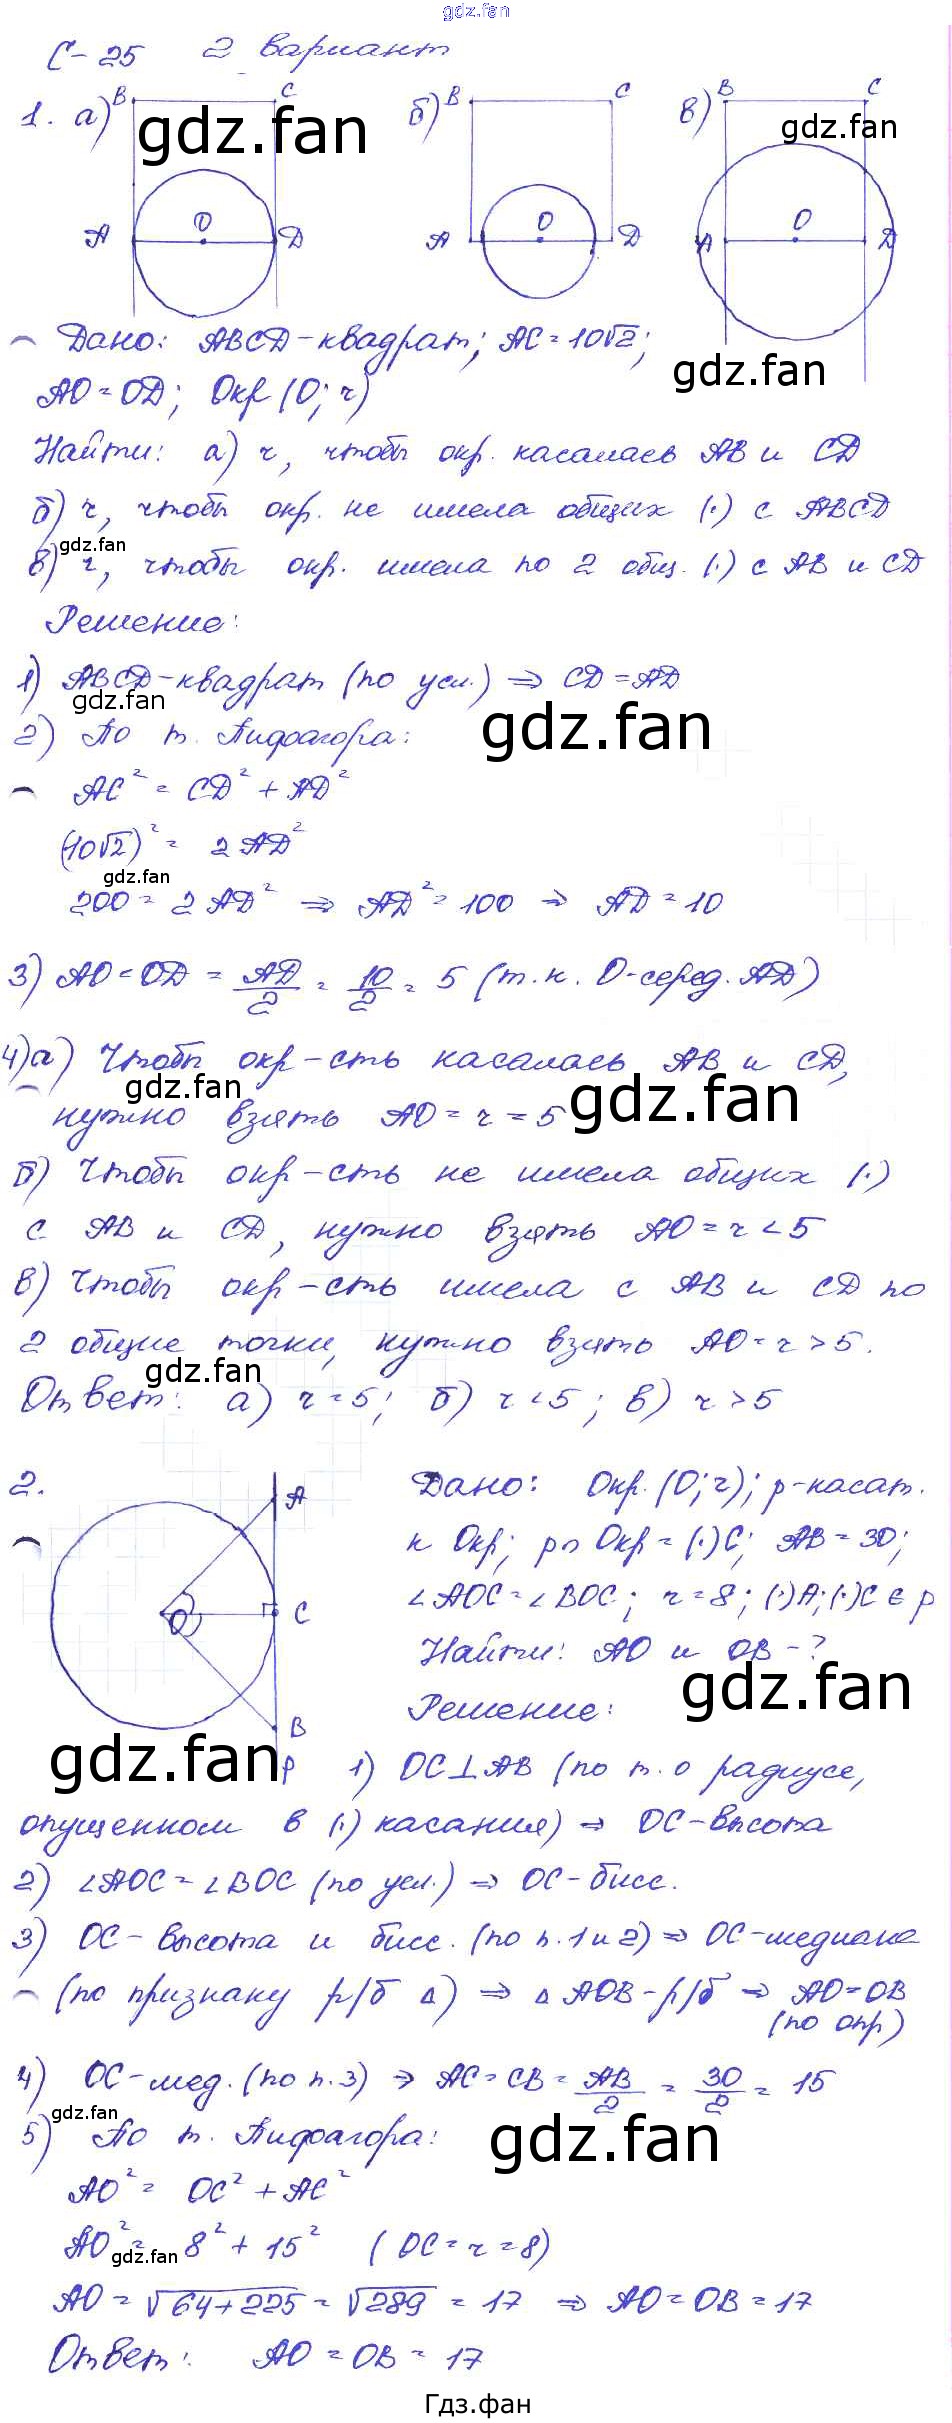 gdz.fan
С-25 2 вариант
1. а) B C б) B C в) B C
gdz.fan gdz.fan
A O D A O D A O D
Дано: ABCD-квадрат; AC=10√2;
gdz.fan
AO=OD; Окр(O; r)
Найти: а) r, чтобы окр. касалась AB и CD
б) r, чтобы окр. не имела общих (·) с ABCD
gdz.fan
в) r, чтобы окр. имела по 2 общ. (·) с AB и CD
Решение:
1) ABCD-квадрат (по усл.) ⇒ CD=AD
gdz.fan
gdz.fan
2) По т. Пифагора:
AC² = CD² + AD²
(10√2)² = 2AD²
gdz.fan
200 = 2AD² ⇒ AD² = 100 ⇒ AD = 10
3) AO=OD = AD/2 = 10/2 = 5 (т.к. O-серед. AD)
4) а) Чтобы окр-сть касалась AB и CD,
gdz.fan gdz.fan
нужно взять AO = r = 5
б) Чтобы окр-сть не имела общих (·)
с AB и CD, нужно взять AO = r < 5
в) Чтобы окр-сть имела с AB и CD по
2 общие точки, нужно взять AO = r > 5.
gdz.fan
Ответ: а) r=5; б) r<5; в) r>5
2. Дано: Окр.(O; r); p-касат.
A
к Окр; p∩Окр = (·)C; AB=30;
∠AOC=∠BOC; r=8; (·)A; (·)C ∈ p
O C
Найти: AO и OB-?
gdz.fan
Решение:
B
gdz.fan
p 1) OC⊥AB (по т. о радиусе,
опущенном в (·) касания) ⇒ OC-высота
2) ∠AOC=∠BOC (по усл.) ⇒ OC-бисс.
3) OC-высота и бисс. (по п. 1 и 2) ⇒ OC-медиана
(по признаку р/б Δ) ⇒ ΔAOB-р/б ⇒ AO=OB
(по опр)
4) OC-мед. (по п. 3) ⇒ AC=CB = AB/2 = 30/2 = 15
gdz.fan
5) По т. Пифагора:
gdz.fan
AO² = OC² + AC²
AO² = 8² + 15² (OC=r=8)
gdz.fan
AO = √64+225 = √289 = 17 ⇒ AO=OB=17
Ответ: AO=OB=17
Гдз.фан